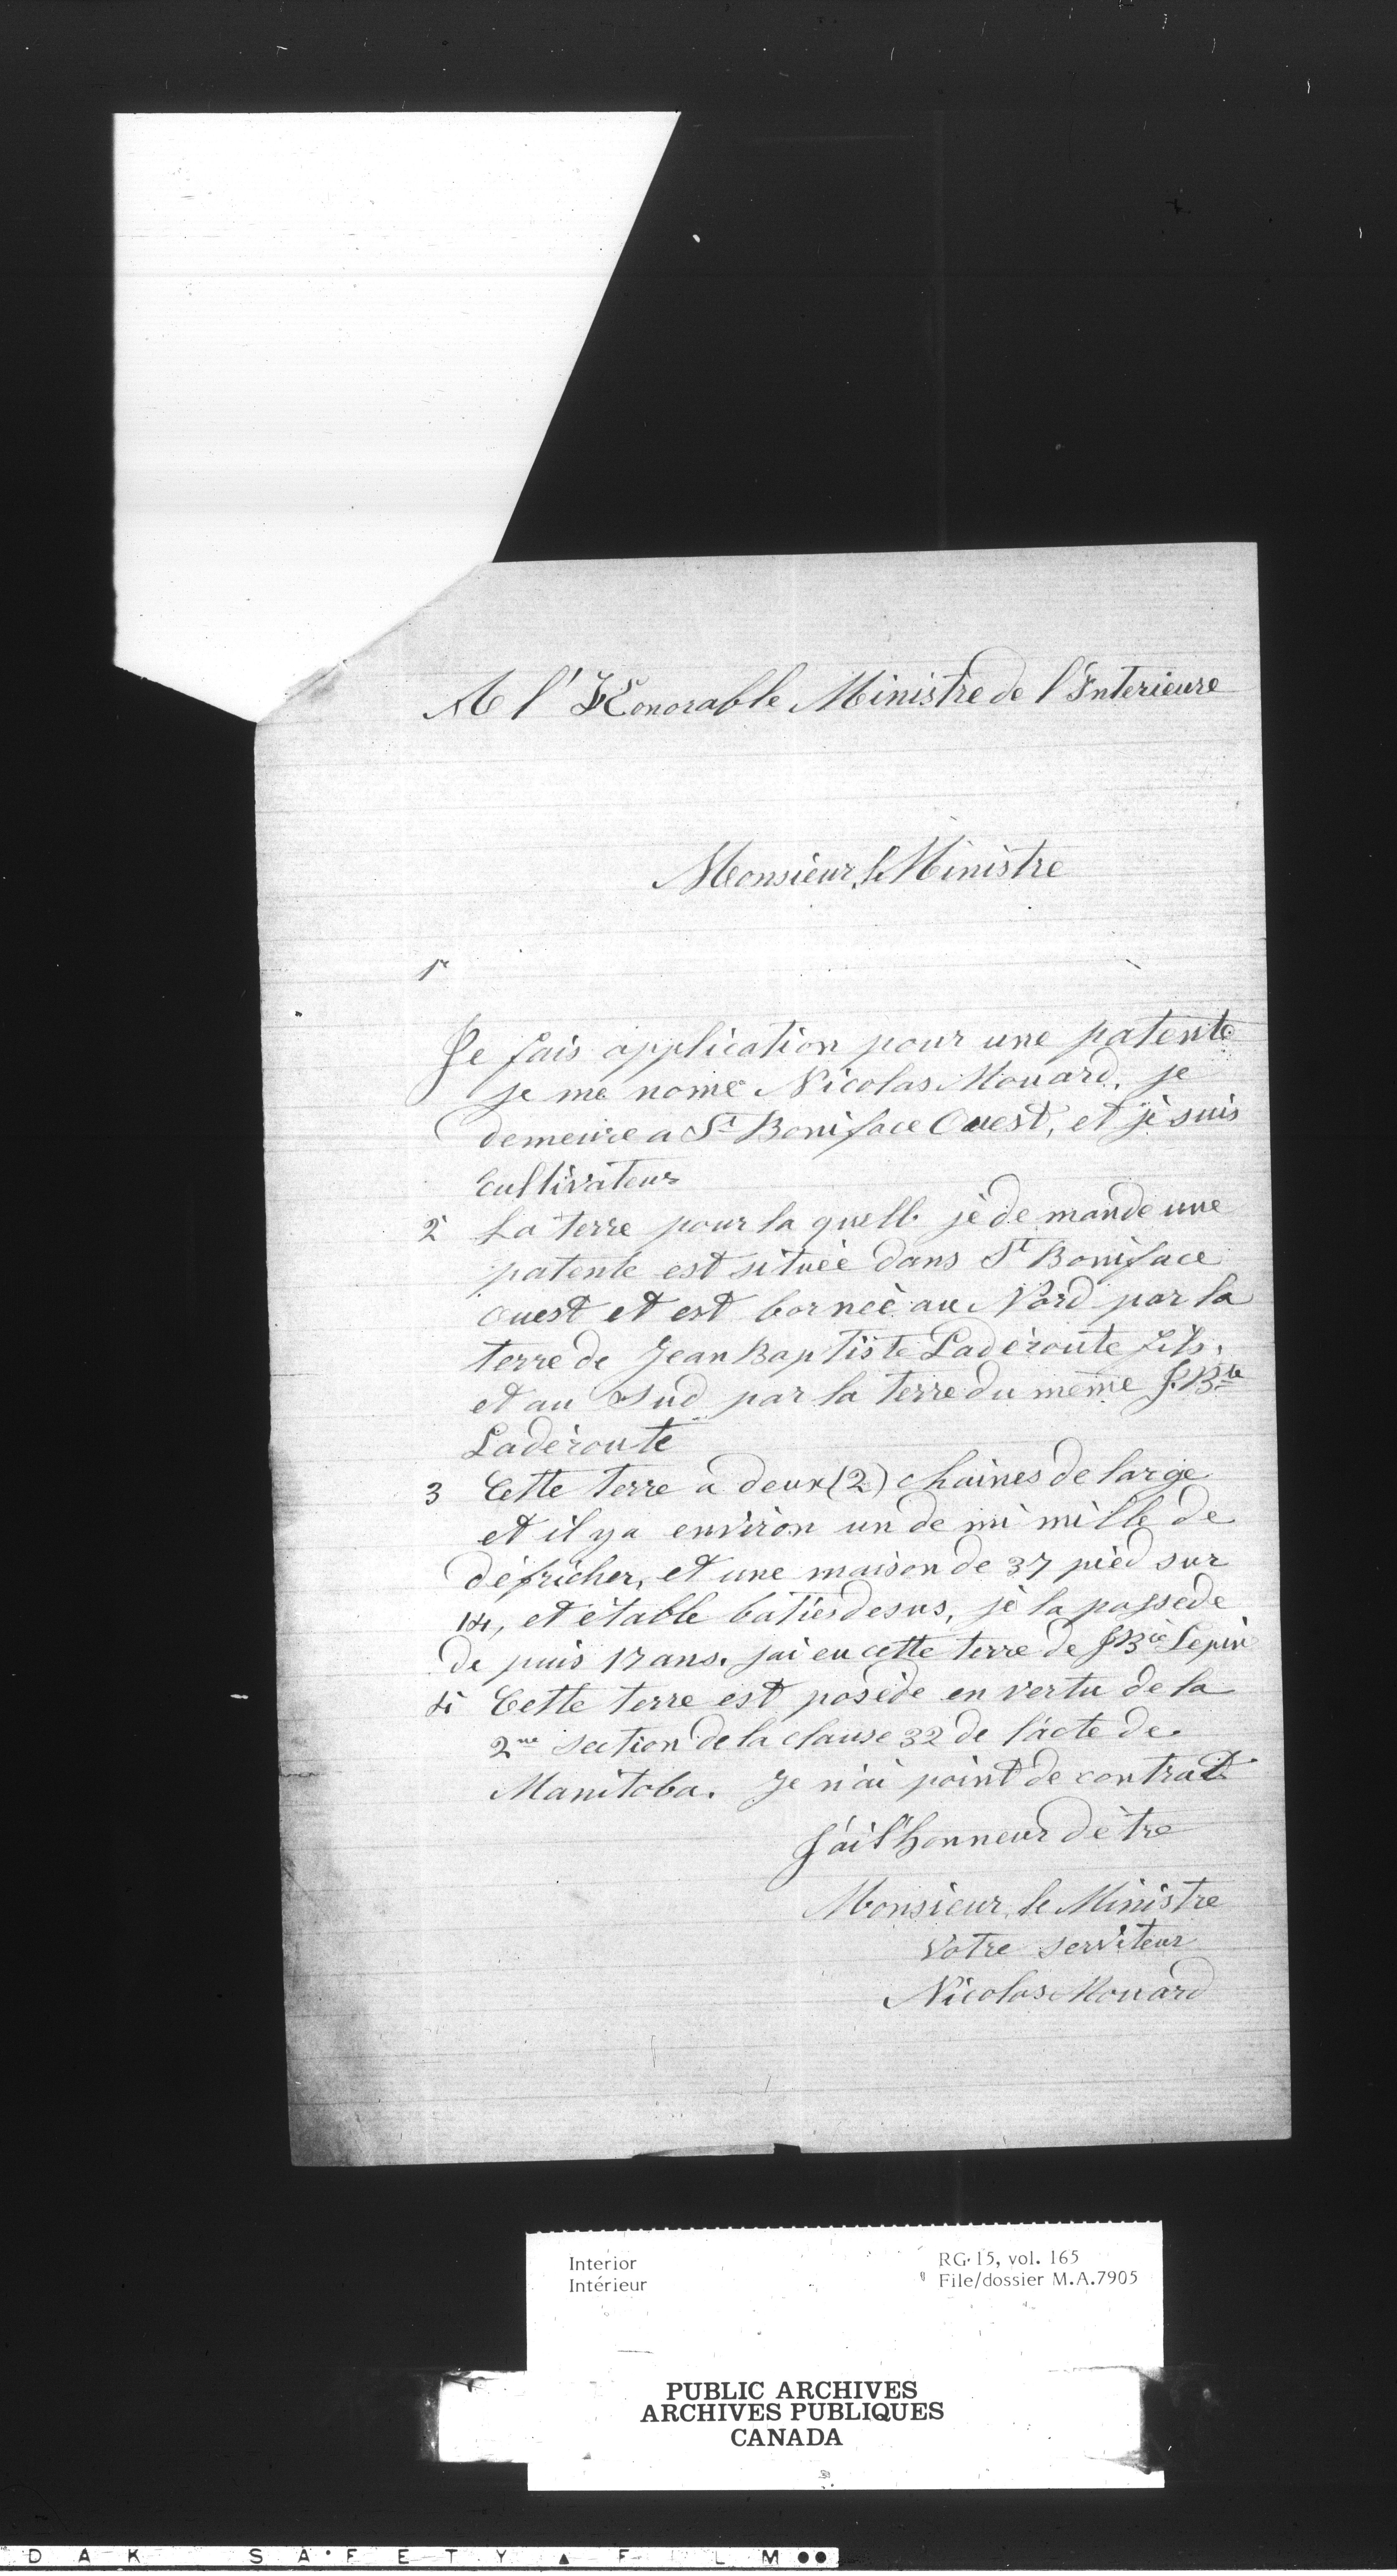 A l' Honorable Ministre de l'Interieure
Monsieur le Ministre
1r
Je fais application pour une patente
je me nome Nicolas Mouard, je
demeure a St Boniface Ouest, et je suis
cultivateur
2 La terre pour la quelle jè de mande une
patente est situèè dans St Boniface
Ouest et est bornèè au Nord par la
terre de Jean Baptiste Ladèroute fils,
et au Sud par la terre du même J. Bte
Ladèroute
3 Cette terre a deux (2) chaines de large
et il y a environ un de mi mille de
défricher, et une maison de 37 pièd sur
14, et ètable baties desus, jè la possede
de puis 17 ans. jai eu cette terre de J Bte Lepin
4 Cette terre est posède en vertu de la
2me section de la clause 32 de l'acte de
Manitoba. Je n'ai point de contrat
J'ai l'honneur d'ètre
Monsieur le Ministre
Votre serviteur
Nicolas Mouard
Interior
Intérieur
RG 15, vol. 165
File/dossier M.A.7905
PUBLIC ARCHIVES
ARCHIVES PUBLIQUES
CANADA
DAK SAFETY ▲ FILM ●●